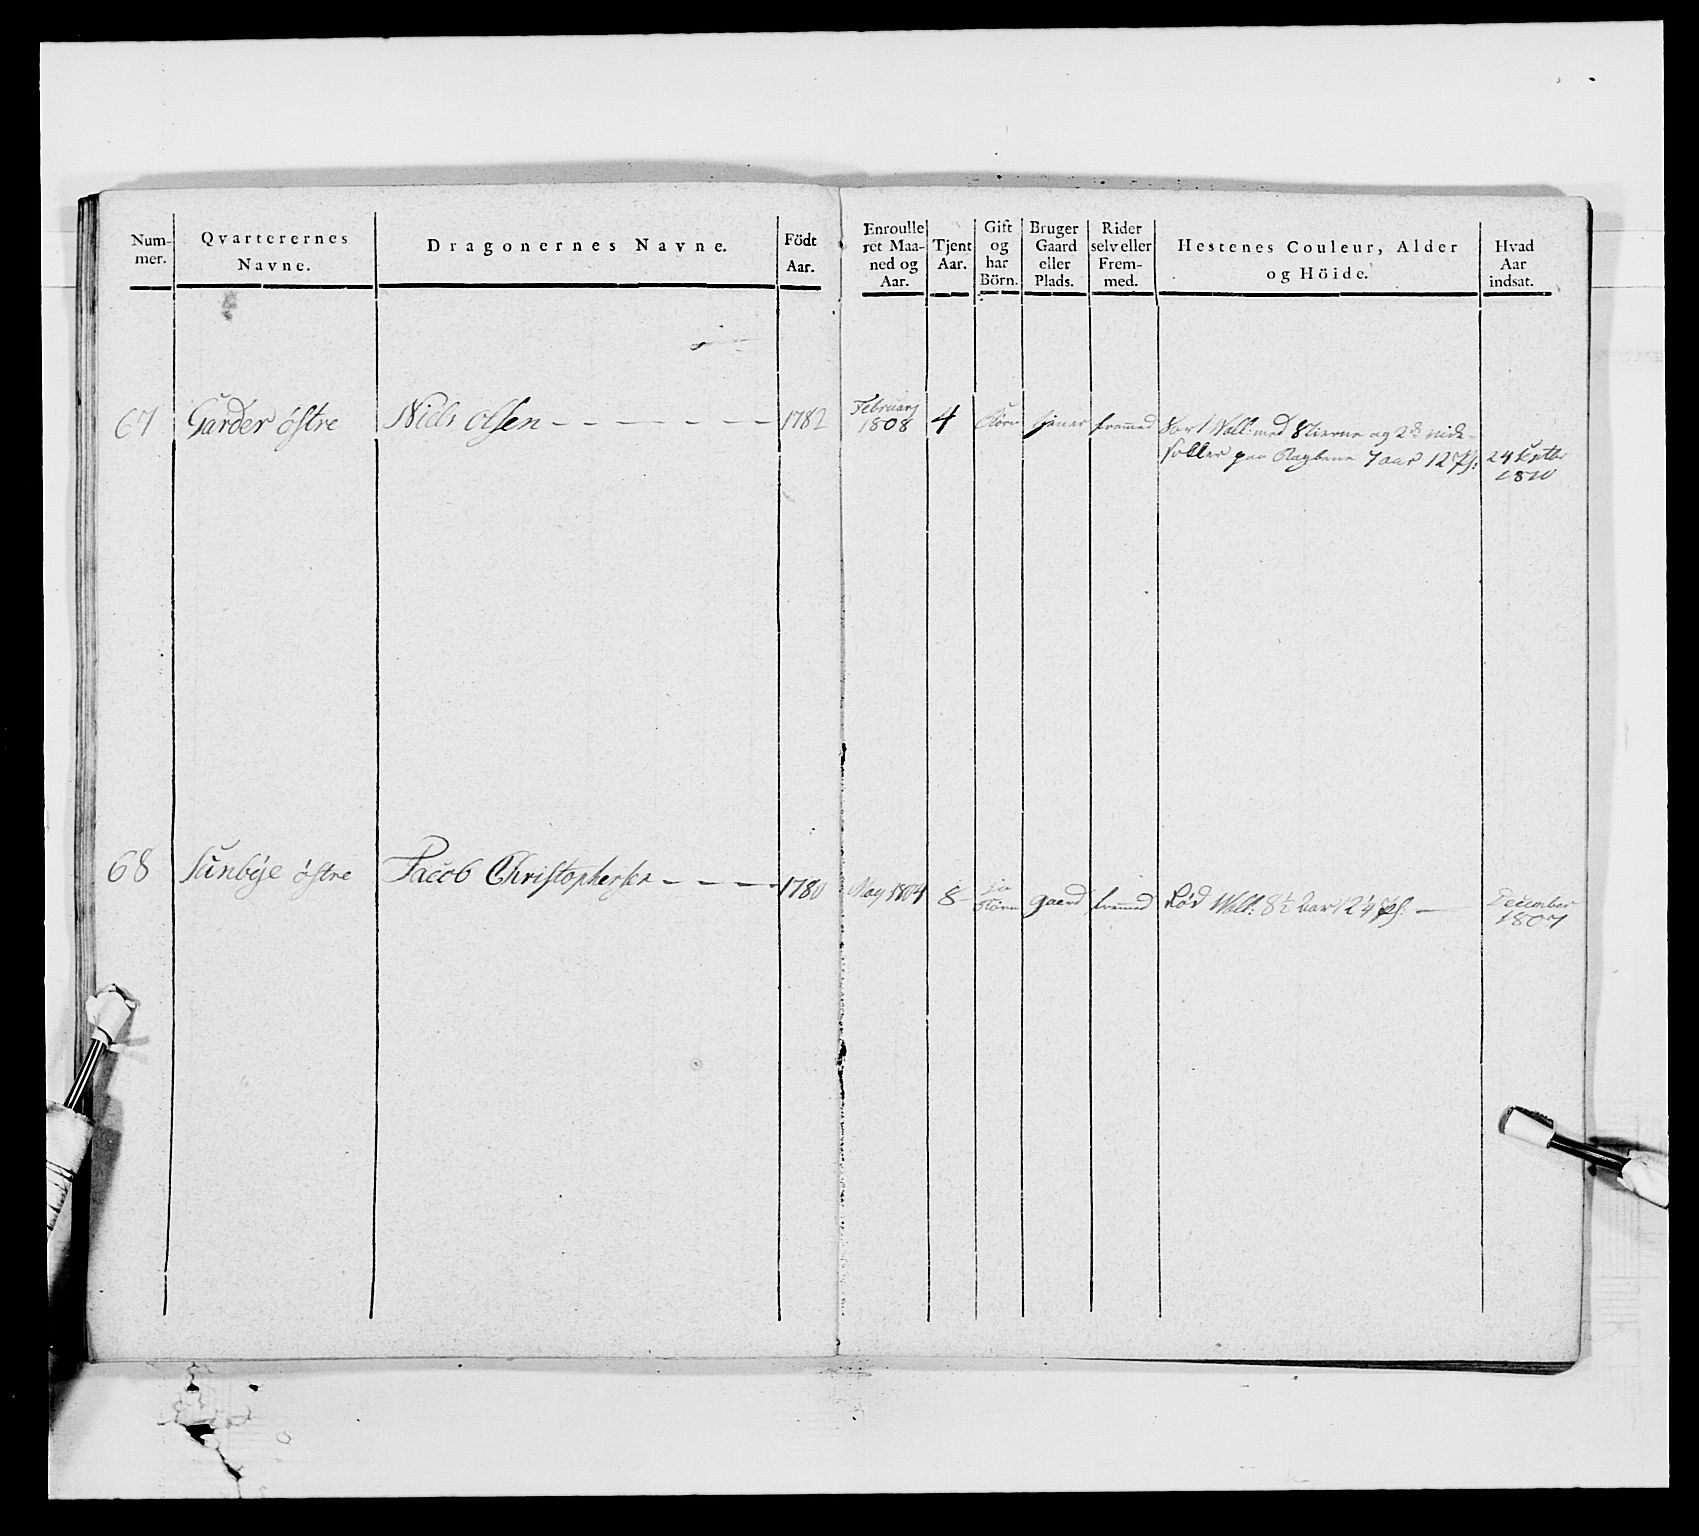 Num-
mer.
Qvarterernes
Navne.
Dragonernes Navne.
Födt
Aar.
Enroulle
ret Maa-
ned og
Aar.
Tjent
Aar.
Gift
og
har
Börn.
Bruger
Gaard
eller
Plads.
Rider
selv eller
Frem-
med.
Hestenes Couleur, Alder
og Höide.
Hvad
Aar
indsat.
67 Garder östre Niels Olsen - - - - - - - 1782
Februarj
1808 4 fremmed Sort Vall: med Stierne og 2de
paa 7 aar 12 24
1810
68 Sunbÿe östre Jacob Christophersen - - - - 1780
May 1804 8 ja
Börn gaard fremmed Rød Vall: 8½ aar 12¼ —
December
1807